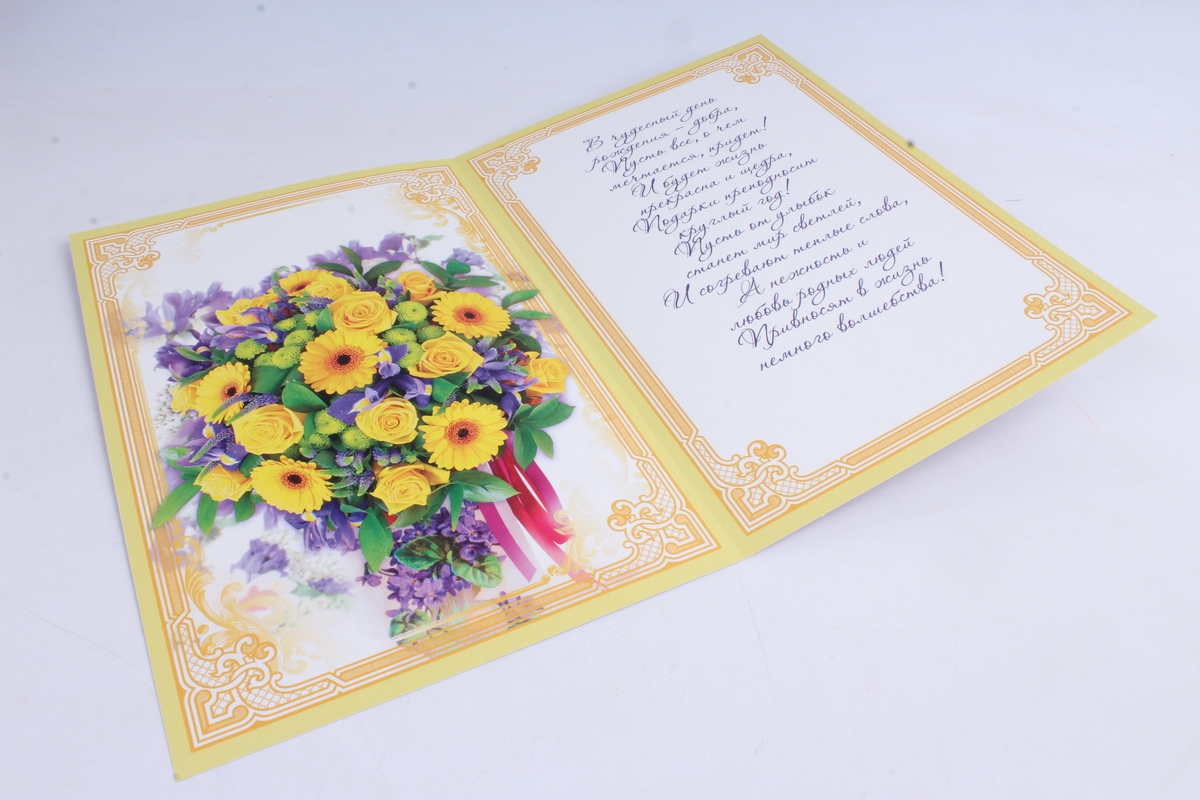 В чудесный день
рождения – добра,
Пусть все, о чем
мечтается, придет!
И будет жизнь
прекрасна и щедра,
Подарки преподносит
круглый год!
Пусть от улыбок
станет мир светлей,
И согревают теплые слова,
А нежность и
любовь родных людей
Привносят в жизнь
немного волшебства!